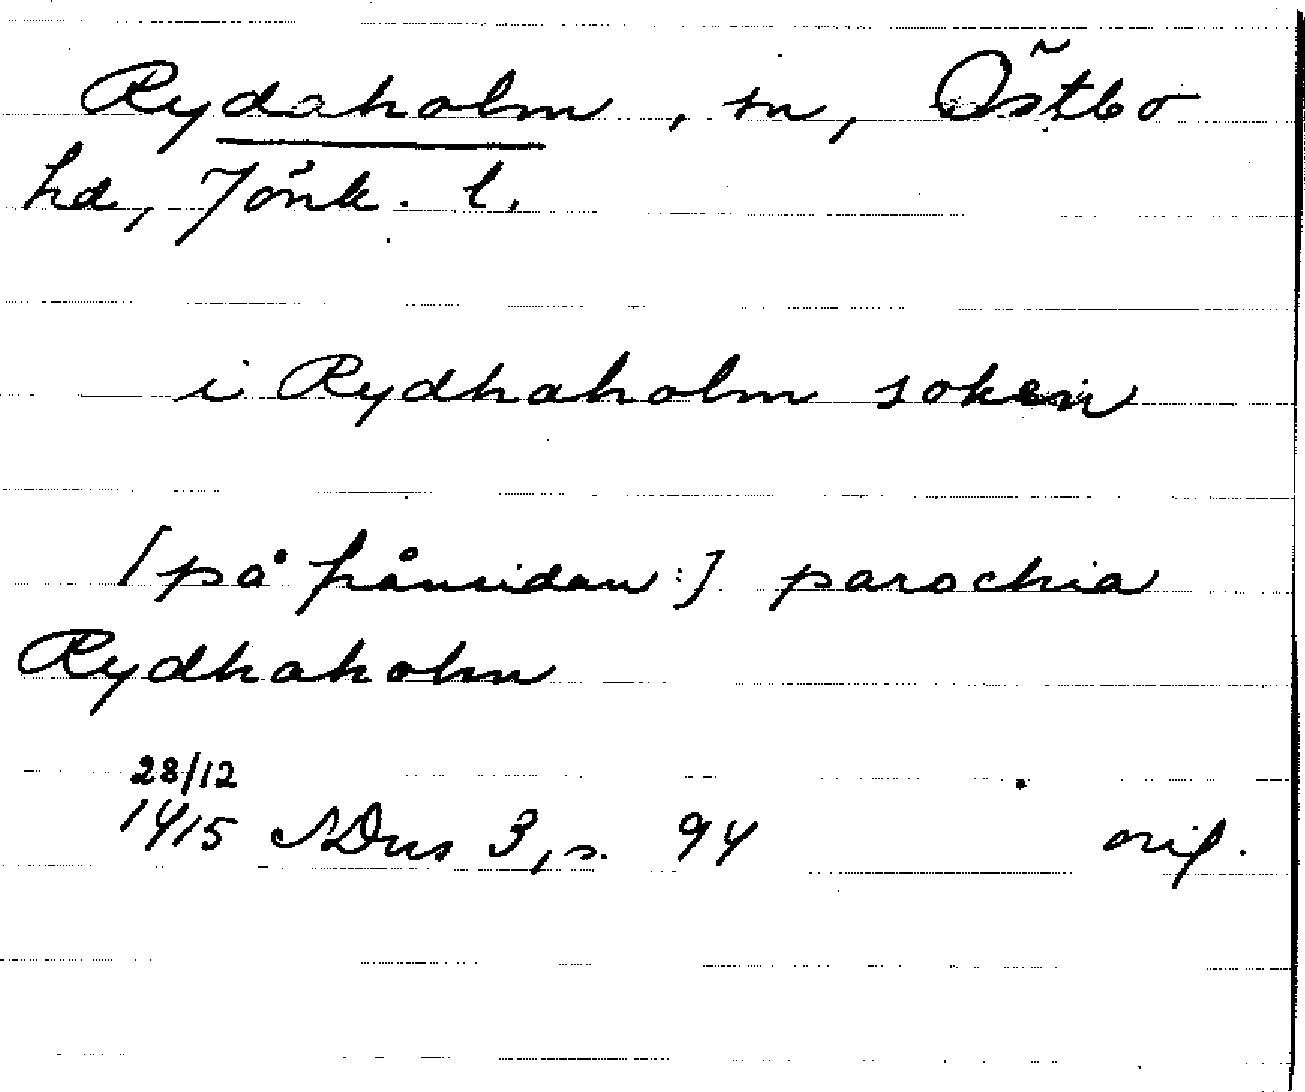 Rydaholm, sn, Östbo
hd, Jönk. l.
i Rydhaholm soken
[på frånsidan:] parochia
Rydhaholm
28/12
1415 SDns 3, s. 94 orig.